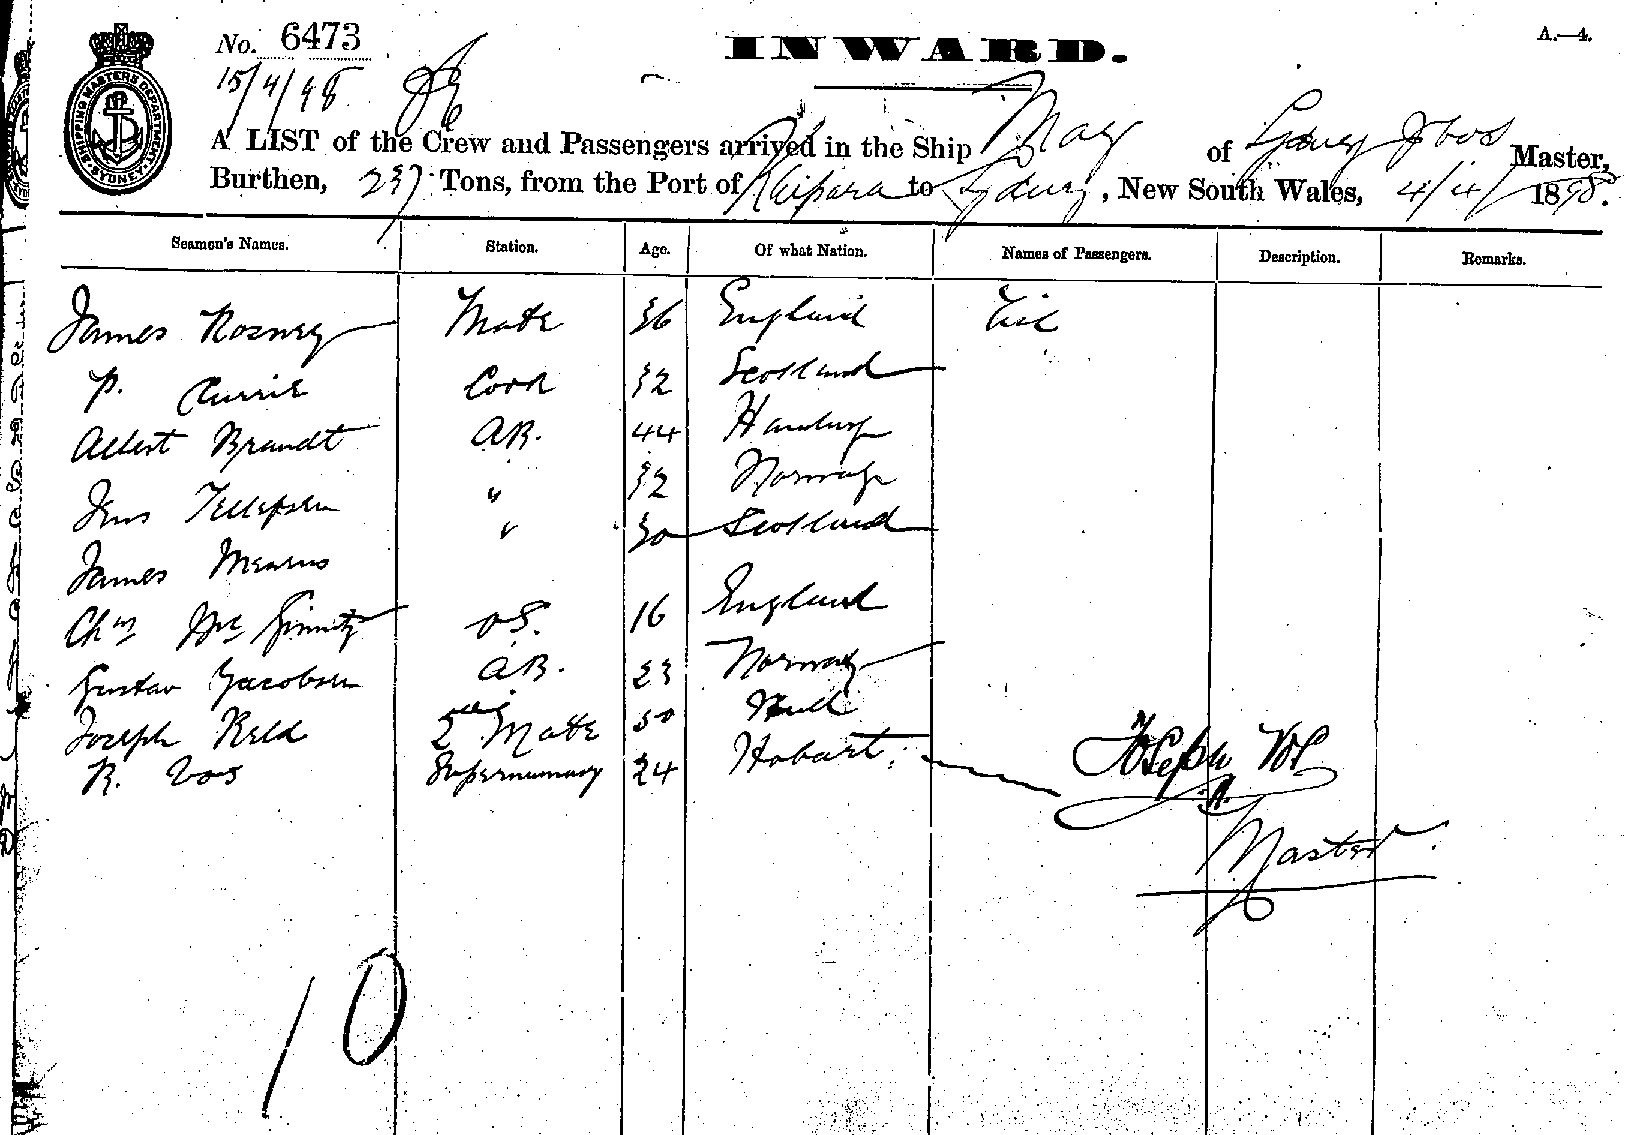 No. 6473
INWARD.
A.—4.
15/4/98
SHIPPING MASTERS DEPARTMENT SYDNEY
A LIST of the Crew and Passengers arrived in the Ship May of Sydney J Vos Master,
Burthen, 237 Tons, from the Port of Kaipara to Sydney, New South Wales, 4/4/1898.
Seamen's Names. Station. Age. Of what Nation. Names of Passengers. Description. Remarks.
James Rosney Mate 36 England
P. Currie Cook 32 Scotland
Albert Brandt AB. 44 Hamburg
Jens Tellepsen " 32 Norway
James Mearns " 30 Scotland
Chas Mc Ginnity OS. 16 England
Gustav Jacobsen AB. 23 Norway
Joseph Reld 2nd Mate 50 Hull
R. Vos Supernumary 24 Hobart.
Joseph Vos
Master
10